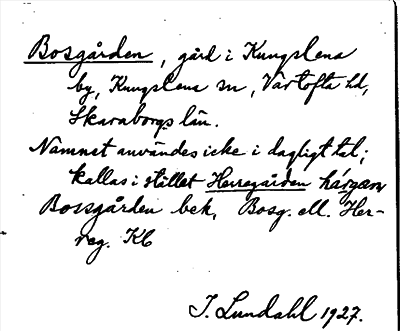 Bosgården, gård i Kungslena
by, Kungslena sn, Vartofta hd,
Skaraborgs län.
Namnet användes icke i dagligt tal;
kallas i stället Herregården
Bossgården bek, Bosg. ell. Her-
reg. Kb
I. Lundahl 1927.